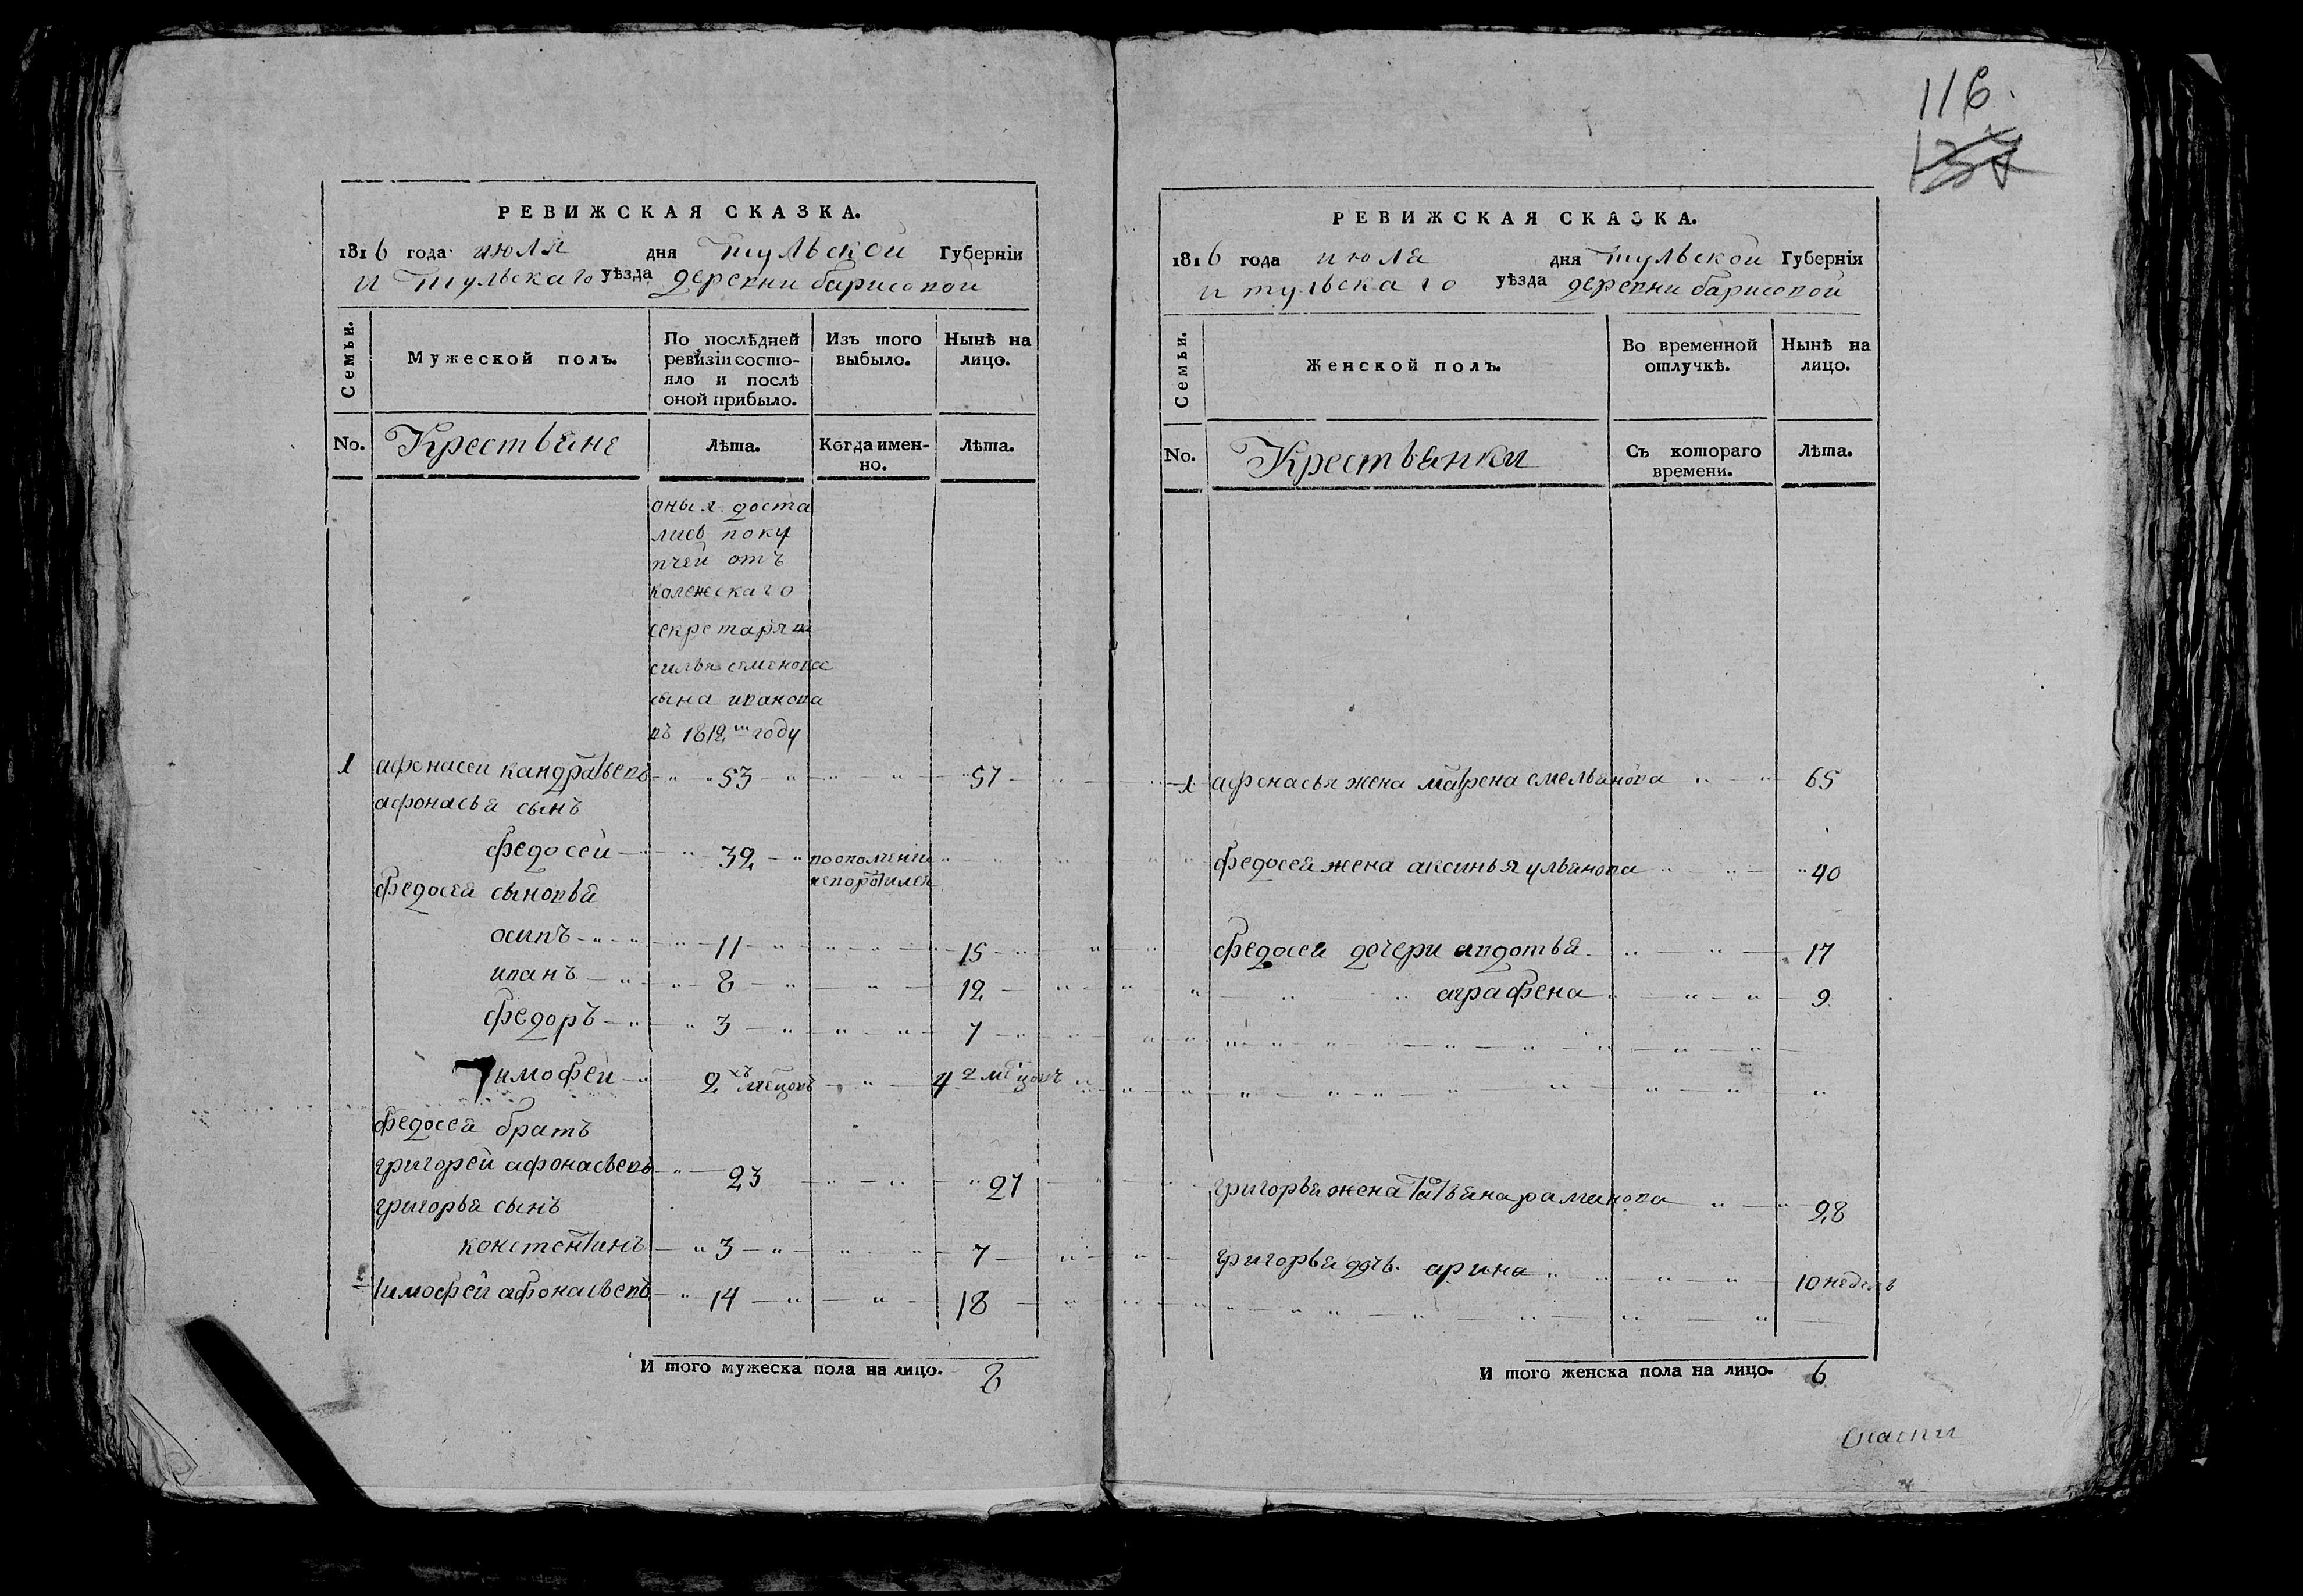 116.
РЕВИЖСКАЯ СКАЗКА.
1816 года июля дня тульской Губерніи
и тульскаго уѣзда деревни барисовой
Семьи.
Мужеской полъ.
По послѣдней ревизіи состояло и послѣ оной прибыло.
Изъ того выбыло.
Нынѣ на лицо.
No.
Крестьяне
Лѣта.
Когда именно.
Лѣта.
оныя доста
лись поку
пчей отъ
колежскаго
секретаря ва
силья семенова
сына иванова
въ 1812м году
1 афонасей кандратьевъ 53 57
афонасья сынъ
федосей 32 воополчении
неворотилса
федосея сыновья
осипъ 11 15
иванъ 8 12
федоръ 3 7
Тимофей 2хъ мецовъ 4 2 мецовъ
федосея братъ
григорей афонасьевъ 23 27
григорья сынъ
констентинъ 3 7
тимофей афонасьевъ 14 18
И того мужеска пола на лицо. 8
РЕВИЖСКАЯ СКАЗКА.
1816 года июля дня тульской Губерніи
и тульскаго уѣзда деревни барисовой
Семьи.
Женской полъ.
Во временной отлучкѣ.
Нынѣ на лицо.
No.
Крестьянки
Съ котораго времени.
Лѣта.
1 афонасья жена матрена емельянова 65
федосея жена аксинья ульянова 40
федосея дочери авдотья 17
аграфена 9
григорья жена татьяна раманова 28
григорья дочь арина 10 недель
И того женска пола на лицо. 6